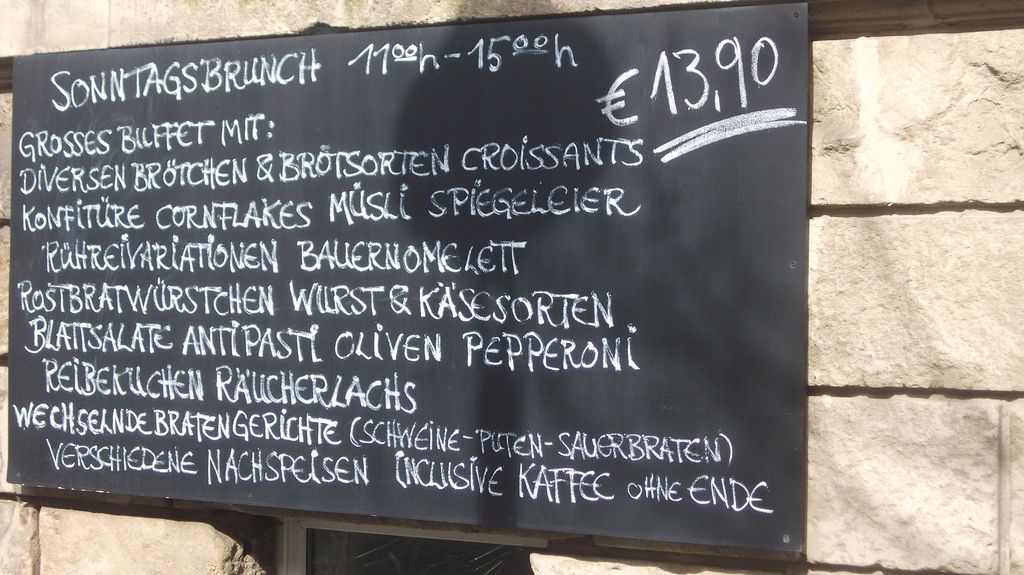 SONNTAGSBRUNCH 11ººh-15ººh € 13,90
GROSSES BUFFET MIT:
DIVERSEN BRÖTCHEN & BRÖTSORTEN CROISSANTS
KONFITÜRE CORNFLAKES MÜSLI SPIEGELEIER
RÜHREIVARIATIONEN BAUERNOMELETT
ROSTBRATWÜRSTCHEN WURST & KÄSESORTEN
BLATTSALATE ANTIPASTI OLIVEN PEPPERONI
REIBEKUCHEN RÄUCHERLACHS
WECHSELNDE BRATENGERICHTE (SCHWEINE-PUTEN-SAUERBRATEN)
VERSCHIEDENE NACHSPEISEN INCLUSIVE KAFFEE OHNE ENDE